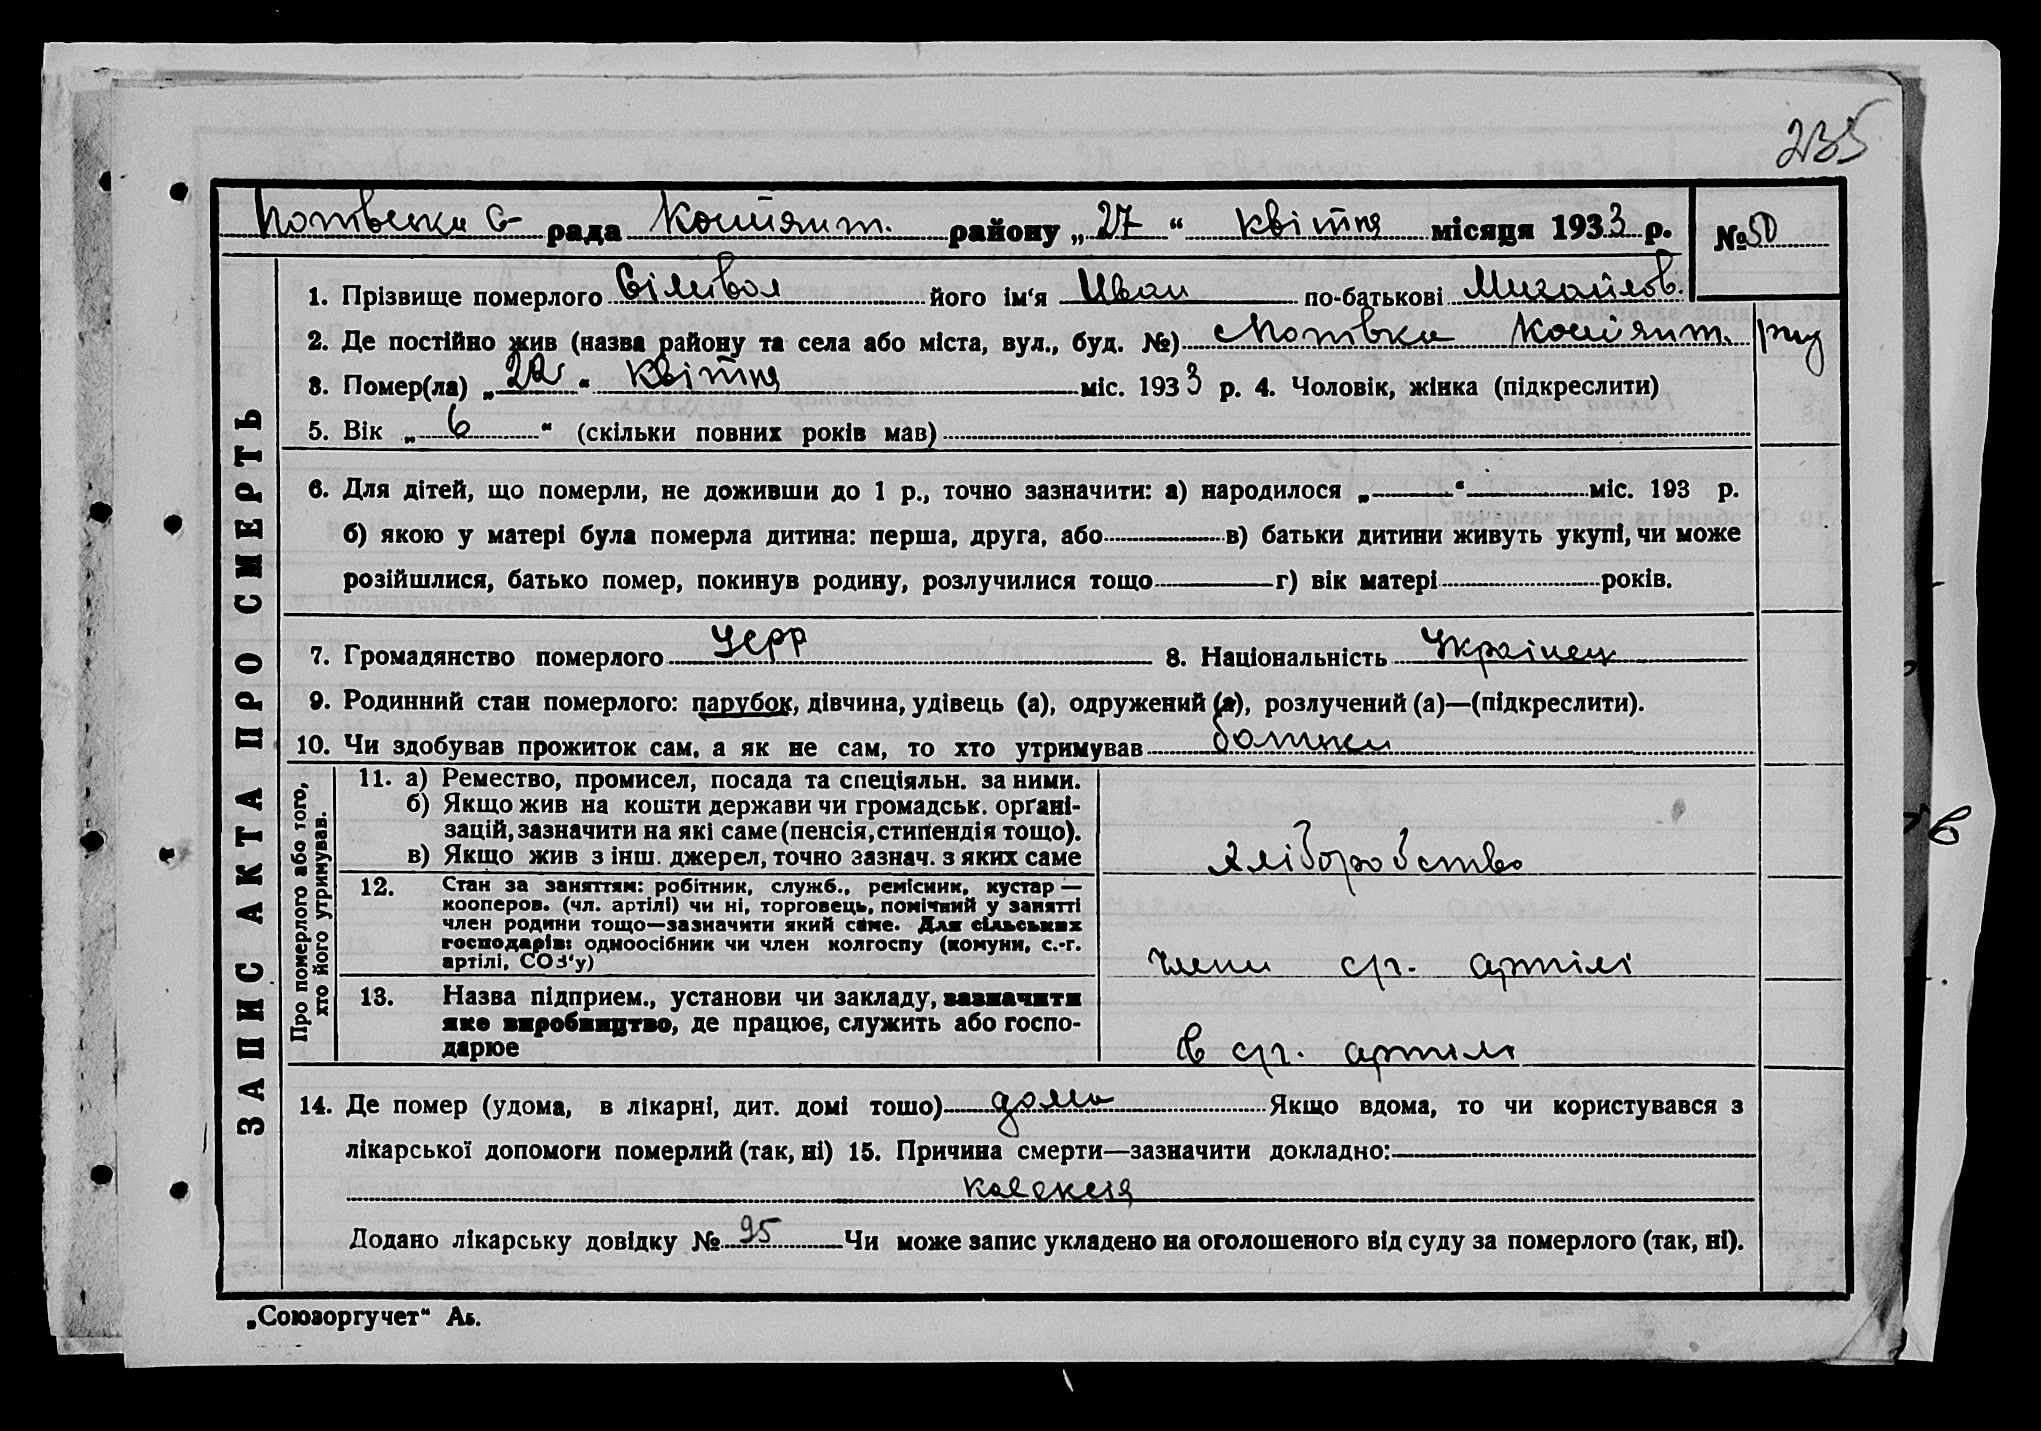 235
рада Кошоват. району „27“ квітня місяця 1933 р. №50
ЗАПИС АКТА ПРО СМЕРТЬ
1. Прізвище померлого його ім‘я Иван по-батькові Михайлов.
2. Де постійно жив (назва району та села або міста, вул., буд. №)
3. Помер(ла) „22“ квітня міс. 1933 р. 4. Чоловік, жінка (підкреслити)
5. Вік „6“ (скільки повних років мав)
6. Для дітей, що померли, не доживши до 1 р., точно зазначити: а) народилося „ “ міс. 193 р.
б) якою у матері була померла дитина: перша, друга, або в) батьки дитини живуть укупі, чи може
розійшлися, батько помер, покинув родину, розлучилися тощо г) вік матері років.
7. Громадянство померлого УСРР 8. Національність Українец
9. Родинний стан померлого: парубок, дівчина, удівець (а), одружений (а), розлучений (а)—(підкреслити).
10. Чи здобував прожиток сам, а як не сам, то хто утримував батьки
Про померлого або того,
хто його утримував.
11. а) Ремество, промисел, посада та спеціяльн. за ними.
б) Якщо жив на кошти держави чи громадськ. орґані-
зацій, зазначити на які саме (пенсія, стипендія тощо).
в) Якщо жив з інш. джерел, точно зазнач. з яких саме
хліборобство
12. Стан за заняттям: робітник, служб., ремісник, кустар —
кооперов. (чл. артілі) чи ні, торговець, помічний у занятті
член родини тощо—зазначити який саме. Для сільських
господарів: одноосібник чи член колгоспу (комуни, с.-г.
артілі, СОЗ‘у)
члени с/г. артілі
13. Назва підприєм., установи чи закладу, зазначити
яке виробництво, де працює, служить або госпо-
дарює
в с/г. артілі
14. Де помер (удома, в лікарні, дит. домі тошо) дома Якщо вдома, то чи користувався з
лікарської допомоги померлий (так, ні) 15. Причина смерти—зазначити докладно:
Додано лікарську довідку № 95 Чи може запис укладено на оголошеного від суду за померлого (так, ні).
„Союзоргучет“ А5.